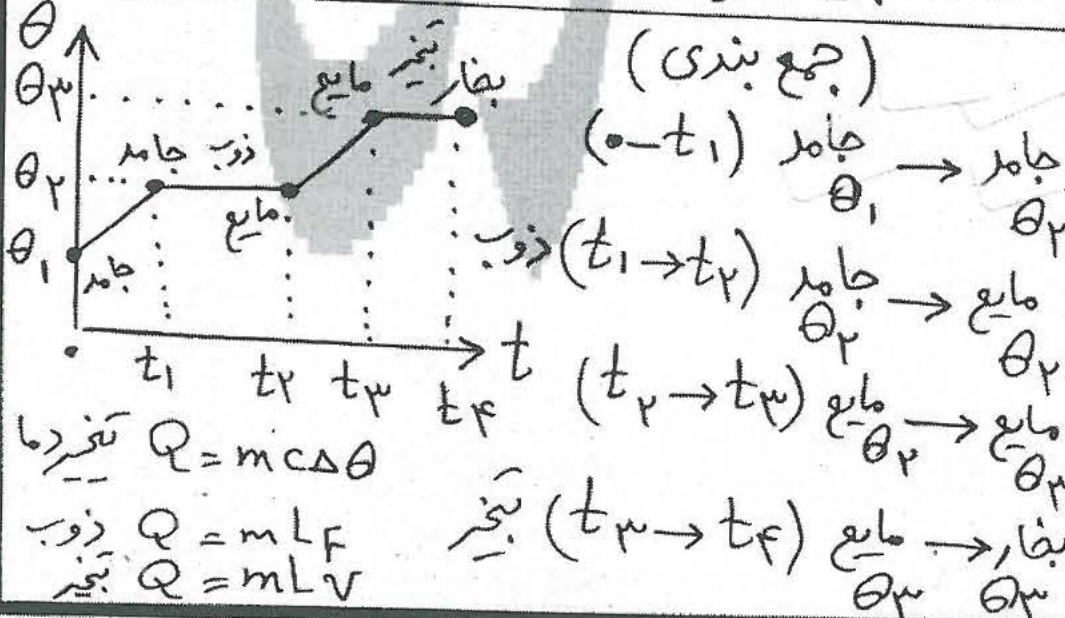 (جمع بندی)
θ
θ۳
θ۲
θ۱
جامد
جامد ذوب
مایع
مایع تبخیر بخار
۰ t۱ t۲ t۳ t۴ t
(۰ - t۱) جامد θ۱ → جامد θ۲
ذوب (t۱ → t۲) جامد θ۲ → مایع θ۲
(t۲ → t۳) مایع θ۲ → مایع θ۳
تبخیر (t۳ → t۴) مایع θ۳ → بخار θ۳
تغییر دما Q = mcΔθ
ذوب Q = mLF
تبخیر Q = mLV